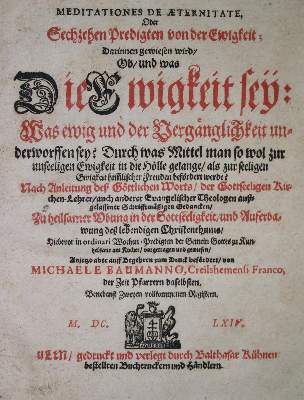 MEDITATIONES DE ÆTERNITATE,
Oder
Sechzehen Predigten von der Ewigkeit;
Darinnen gewiesen wird/
Ob/ und was
Die Ewigkeit sey:
Was ewig und der Vergänglichkeit un-
derworffen sey? Durch was Mittel man so wol zur
unseeligen Ewigkeit in die Hölle gelange/ als zur seeligen
Ewigkeit himlischer Freuden befördert werde?
Nach Anleitung deß Göttlichen Worts/ der Gottseeligen Kir-
chen-Lehrer/ auch anderer Evangelischer Theologen auß-
gelassener Schrifftmässigen Gedancken/
Zu heilsamer Ubung in der Gottseeligkeit/ und Auferba-
wung deß lebendigen Christenthums/
Hiebevor in ordinari Wochen-Predigten der Gemein Gottes zu
am Kocher/ vorgetragen und gewiesen/
Anjetzo aber auff Begehren zum Druck befördert/ von
MICHAELE BAUMANNO, Creilshemensi Franco,
der Zeit Pfarrern daselbsten.
Benebenst Zweyen vollkommenen Registern.
M. DC. LXIV.
ULM/ gedruckt und verlegt durch Balthasar Kühnen
bestellten Buchtruckern und Händlern.